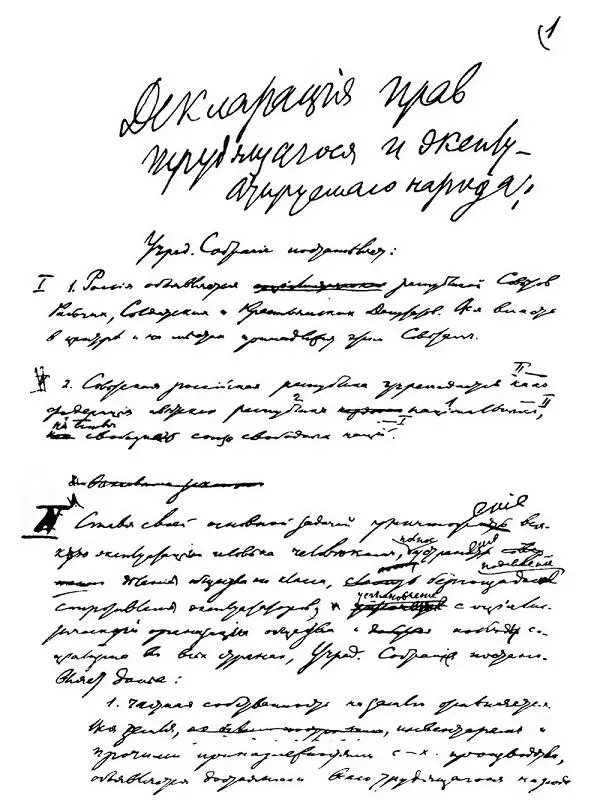 1
Декларація прав
трудящагося и эксплу-
атируемаго народа
Учред. Собраніе постановляет:
I 1. Россія объявляется республикой Советов
Рабочих, Солдатских и Крестьянских Депутатов. Вся власть
в центре и на местах принадлежит этим Советам.
2. Советская российская республика учреждается как II
федерація советских республик 2 национальных, 1 II
на основе свободного союза свободных наций. I
II Ставя своей основной задачей уничтожение вся-
кой эксплуатаціи человека человеком, полное устраненіе
деленія общества на классы, беспощадное подавление
сопротивления эксплуататоров, установление социалис-
тической организации общества и победу со-
циализма во всех странах, Учред. Собрание постано-
вляет далее:
1. Частная собственность на землю отменяется.
Вся земля, с инвентарем и
прочими принадлежностями с.-х. производства,
объявляется достоянием всего трудящагося народа